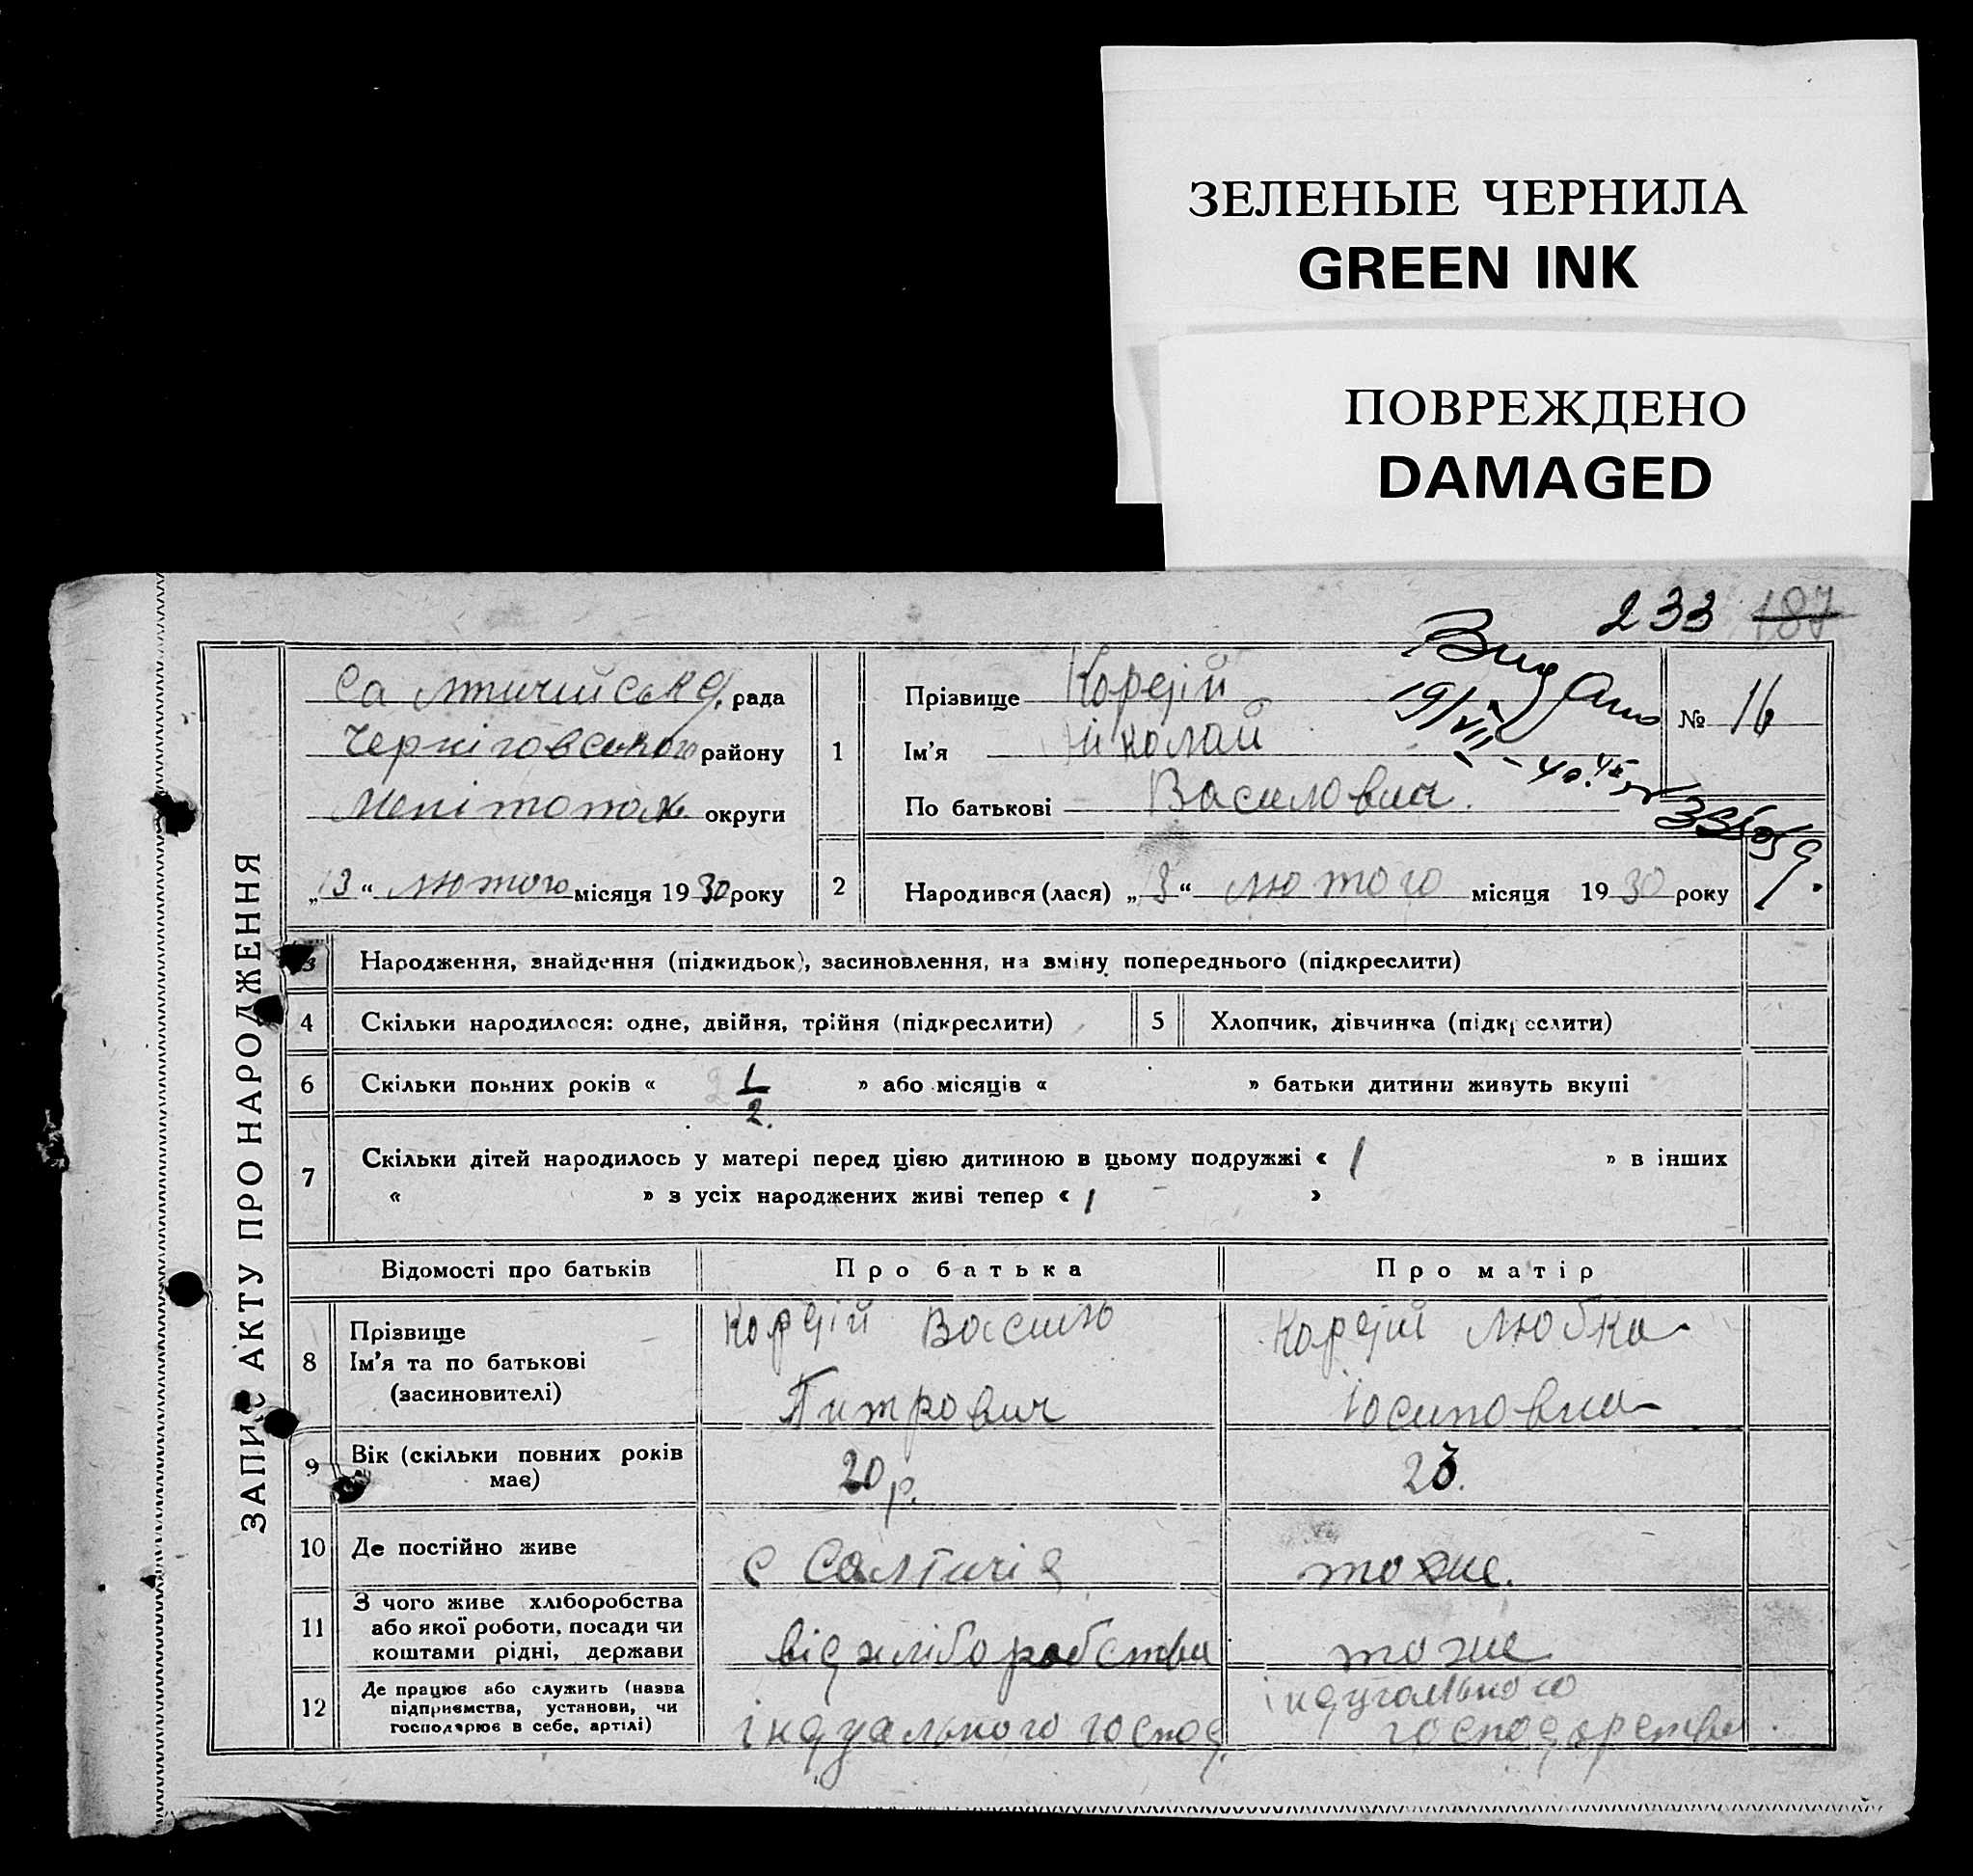 ЗЕЛЕНЫЕ ЧЕРНИЛА
GREEN INK
ПОВРЕЖДЕНО
DAMAGED
233 187
ЗАПИС АКТУ ПРО НАРОДЖЕННЯ
Салтичийськ. рада
Черніговського району
Мелітопол. округи
„13“ лютого місяця 1930 року
1
Прізвище Кордій
Ім'я Ніколай
По батькові Василович.
Видано
19/VII - 40.
№ 16
2 Народився (лася) „3“ лютого місяця 1930 року
3 Народження, знайдення (підкидьок), засиновлення, на зміну попереднього (підкреслити)
4 Скільки народилося: одне, двійня, трійня (підкреслити) 5 Хлопчик, дівчинка (підкреслити)
6 Скільки повних років « 2 1/2. » або місяців « » батьки дитини живуть вкупі
7 Скільки дітей народилось у матері перед цією дитиною в цьому подружжі « 1 » в інших
« » з усіх народжених живі тепер « 1 »
Відомості про батьків Про батька Про матір
8 Прізвище
Ім'я та по батькові
(засиновителі)
Кордій Василь
Питрович
Кордій Любка
Іосиповна
9 Вік (скільки повних років
має)
20 р.
23.
10 Де постійно живе с Салтичія тоже.
11 З чого живе хліборобства
або якої роботи, посади чи
коштами рідні, держави
від хліборобства
тоже
12 Де працює або служить (назва
підприємства, установи, чи
господарює в себе, артілі)
індуального господ.
індугального
господарства.